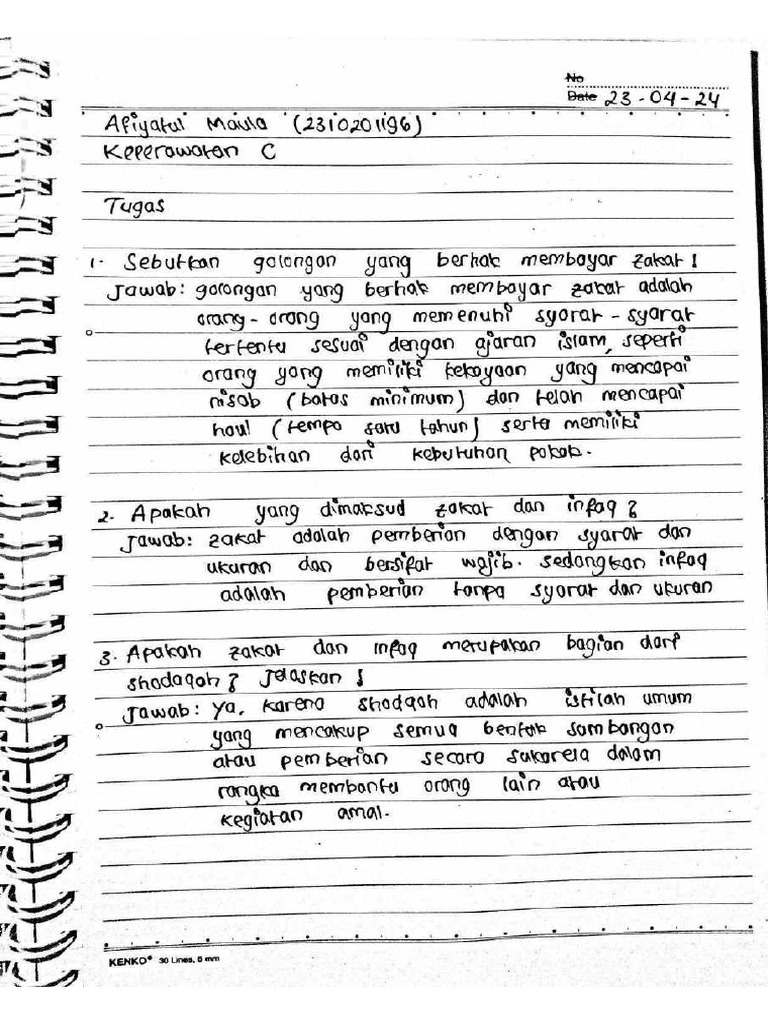 No
Date 23-04-24
Afiyatul Maula (2310201196)
Keperawatan C
Tugas
1. Sebutkan golongan yang berhak membayar zakat!
Jawab: golongan yang berhak membayar zakat adalah
orang-orang yang memenuhi syarat-syarat
tertentu sesuai dengan ajaran islam, seperti
orang yang memiliki kekayaan yang mencapai
nisab (batas minimum) dan telah mencapai
haul (tempo satu tahun) serta memiliki
kelebihan dari kebutuhan pokok.
2. Apakah yang dimaksud zakat dan infaq?
Jawab: zakat adalah pemberian dengan syarat dan
ukuran dan bersifat wajib. sedangkan infaq
adalah pemberian tanpa syarat dan ukuran
3. Apakah zakat dan infaq merupakan bagian dari
shadaqah? Jelaskan!
Jawab: Ya, karena shadqah adalah istilah umum
yang mencakup semua bentuk sambangan
atau pemberian secara sukarela dalam
rangka membantu orang lain atau
kegiatan amal.
KENKO® 30 Lines, 6 mm